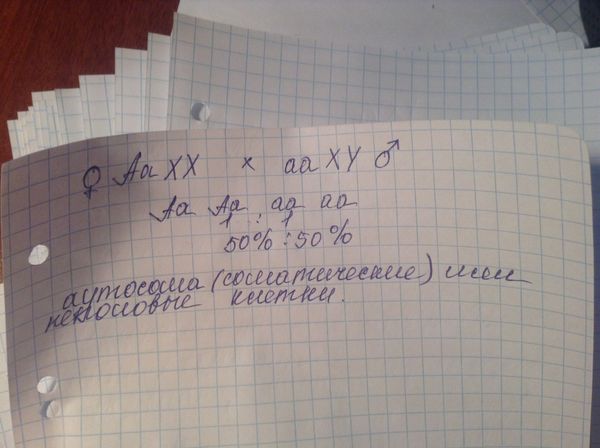 ♀ Aa XX × aa XY ♂
Aa Aa aa aa
1 : 1
50% : 50%
аутосома (соматические) или
неполовые клетки.